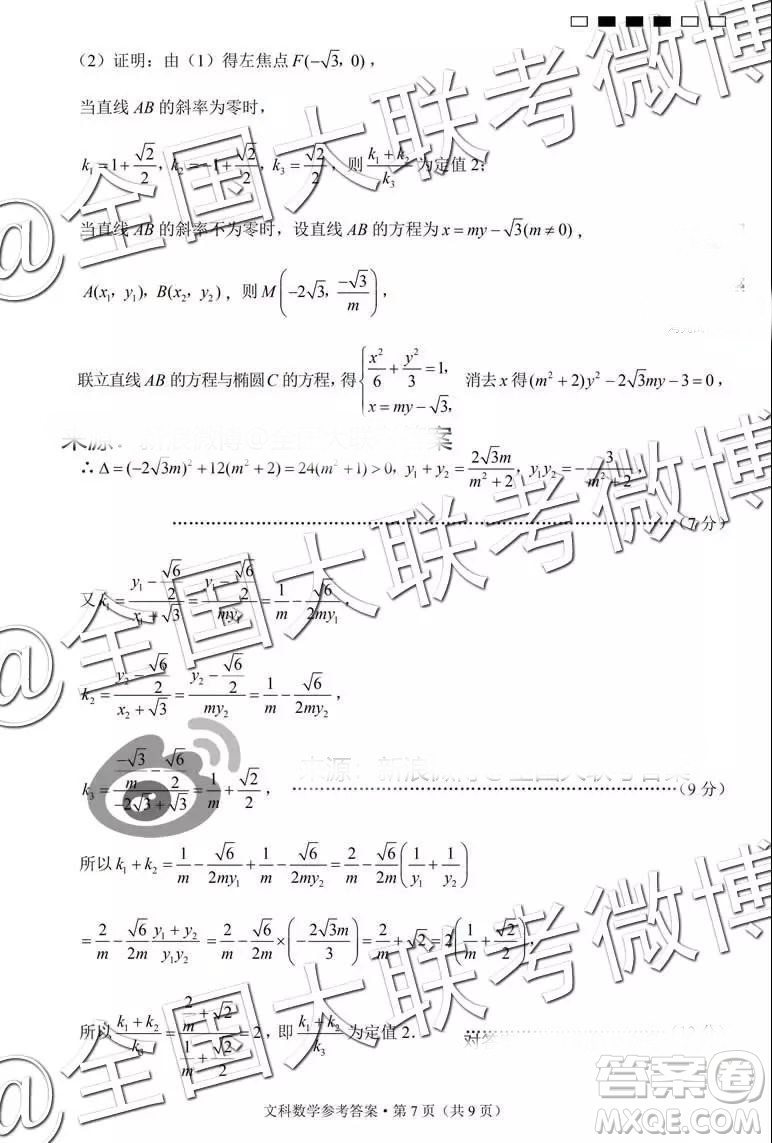 （2）证明：由（1）得左焦点 F(−√3，0)，
当直线 AB 的斜率为零时，
k₁=1+√2/2，k₂=−1+√2/2，k₃=√2/2，则 (k₁+k₂)/k₃ 为定值 2；
当直线 AB 的斜率不为零时，设直线 AB 的方程为 x=my−√3(m≠0)，
A(x₁，y₁)，B(x₂，y₂)，则 M(−2√3，−√3/m)，
联立直线 AB 的方程与椭圆 C 的方程，得 {x²/6+y²/3=1，x=my−√3， 消去 x 得 (m²+2)y²−2√3my−3=0，
来源：新浪微博@全国大联考答案
∴Δ=(−2√3m)²+12(m²+2)=24(m²+1)>0，y₁+y₂=2√3m/(m²+2)，y₁y₂=−3/(m²+2)，
（7 分）
又 k₁=(y₁−√6/2)/(x₁+√3)=(y₁−√6/2)/(my₁)=1/m−√6/(2my₁)，
k₂=(y₂−√6/2)/(x₂+√3)=(y₂−√6/2)/(my₂)=1/m−√6/(2my₂)，
来源：新浪微博@全国大联考答案
k₃=(−√3/m−√6/2)/(−2√3+√3)=1/m+√2/2，（9 分）
所以 k₁+k₂=1/m−√6/(2my₁)+1/m−√6/(2my₂)=2/m−√6/(2m)(1/y₁+1/y₂)
=2/m−√6/(2m)·(y₁+y₂)/(y₁y₂)=2/m−√6/(2m)×(−2√3m/3)=2/m+√2=2(1/m+√2/2)，
所以 (k₁+k₂)/k₃=(2/m+√2)/(1/m+√2/2)=2，即 (k₁+k₂)/k₃ 为定值 2．
文科数学参考答案·第 7 页（共 9 页）
@全国大联考微博
@全国大联考微博
答案卷
MXQE.COM